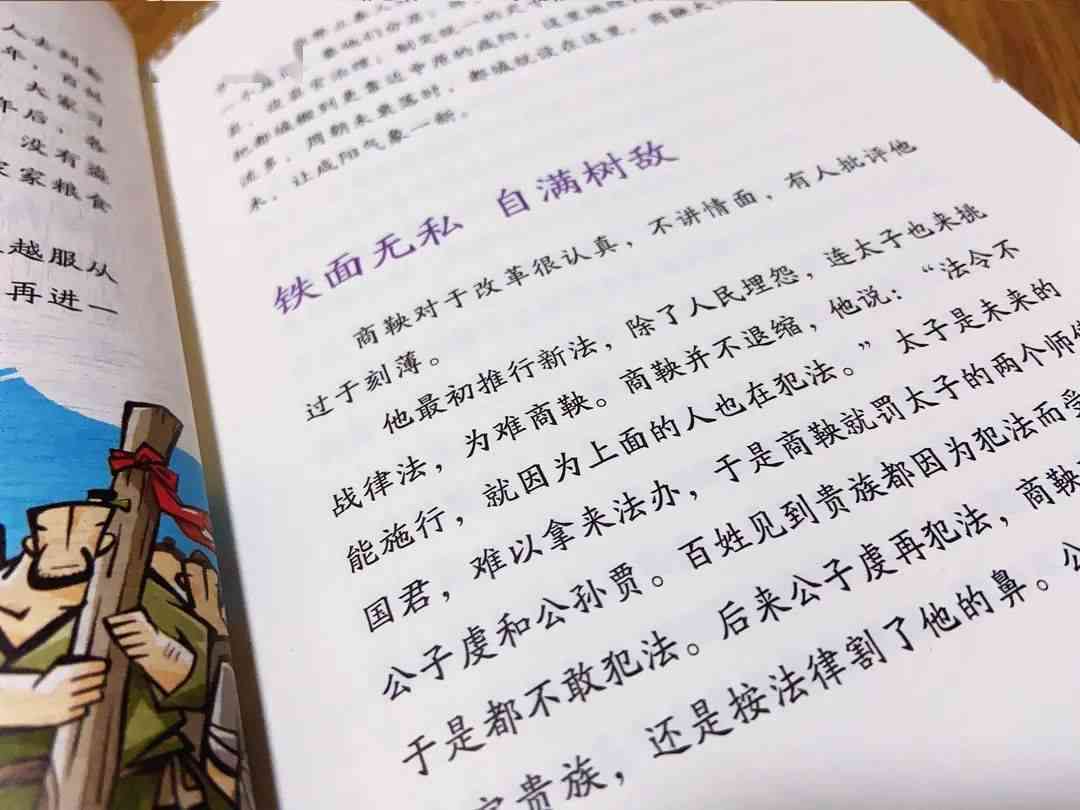 人去到秦
年，百姓
大家习
年后，各
没有盗
家粮食
越服从
再进一
一个
县，派县官治理；制定统一的
把都城搬到更靠近中原的咸阳，这里地
流多，周朝未衰落时，都城就设在这里。
来，让咸阳气象一新。
铁面无私 自满树敌
商鞅对于改革很认真，不讲情面，有人批评他
过于刻薄。
他最初推行新法，除了人民埋怨，连太子也来挑
战律法，为难商鞅。商鞅并不退缩，他说：“法令不
能施行，就因为上面的人也在犯法。”太子是未来的
国君，难以拿来法办，于是商鞅就罚太子的两个师傅
公子虔和公孙贾。百姓见到贵族都因为犯法而受
于是都不敢犯法。后来公子虔再犯法，商鞅
贵族，还是按法律割了他的鼻。公